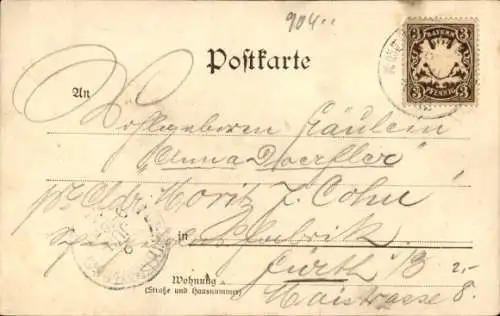 904..
Postkarte
BAYERN
3 3
3 PFENNIG 3
An
Wohlgeboren Fräulein
"Anna Doerfler"
pr. Adr. Moritz J. Cohn
in Fabrik
Fürth i/B 2,-
Wohnung
(Straße und Hausnummer)
Maistrasse 8.